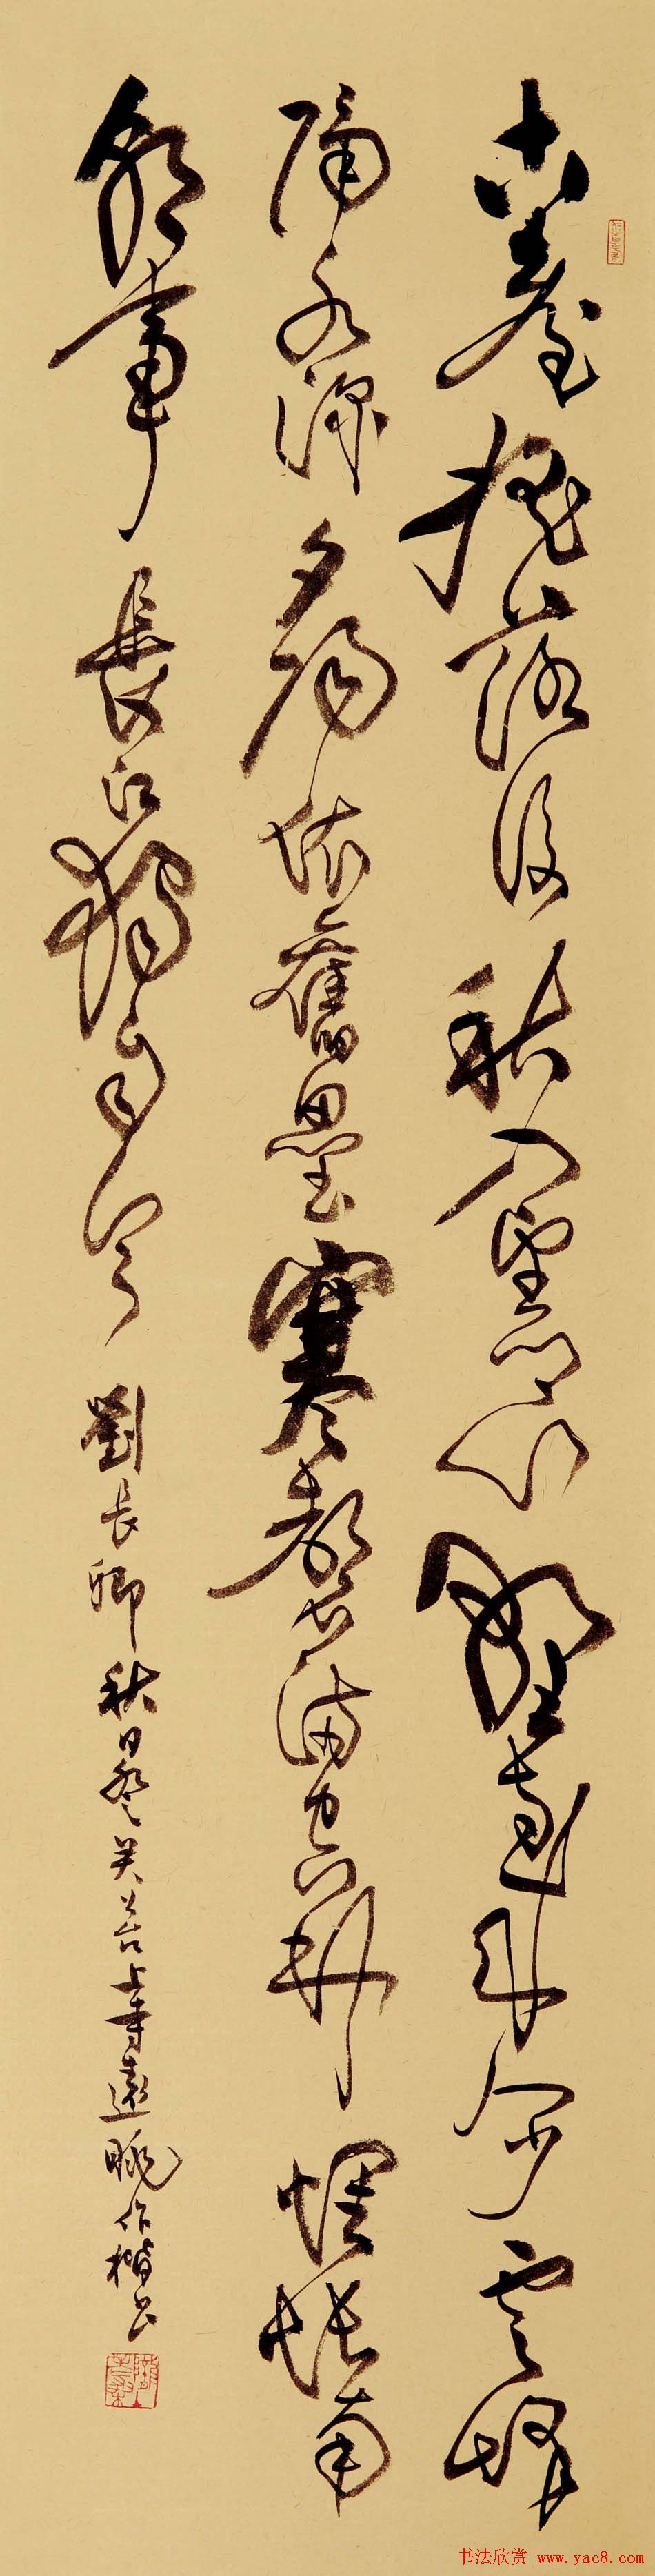 古臺搖落後秋入望鄉心野寺來人少雲峰
隔水深夕陽依舊壘寒磬滿空林惆悵南
朝事長江獨至今 劉長卿秋日登吴公台上寺遠眺作楷書
书法欣赏 www.yac8.com